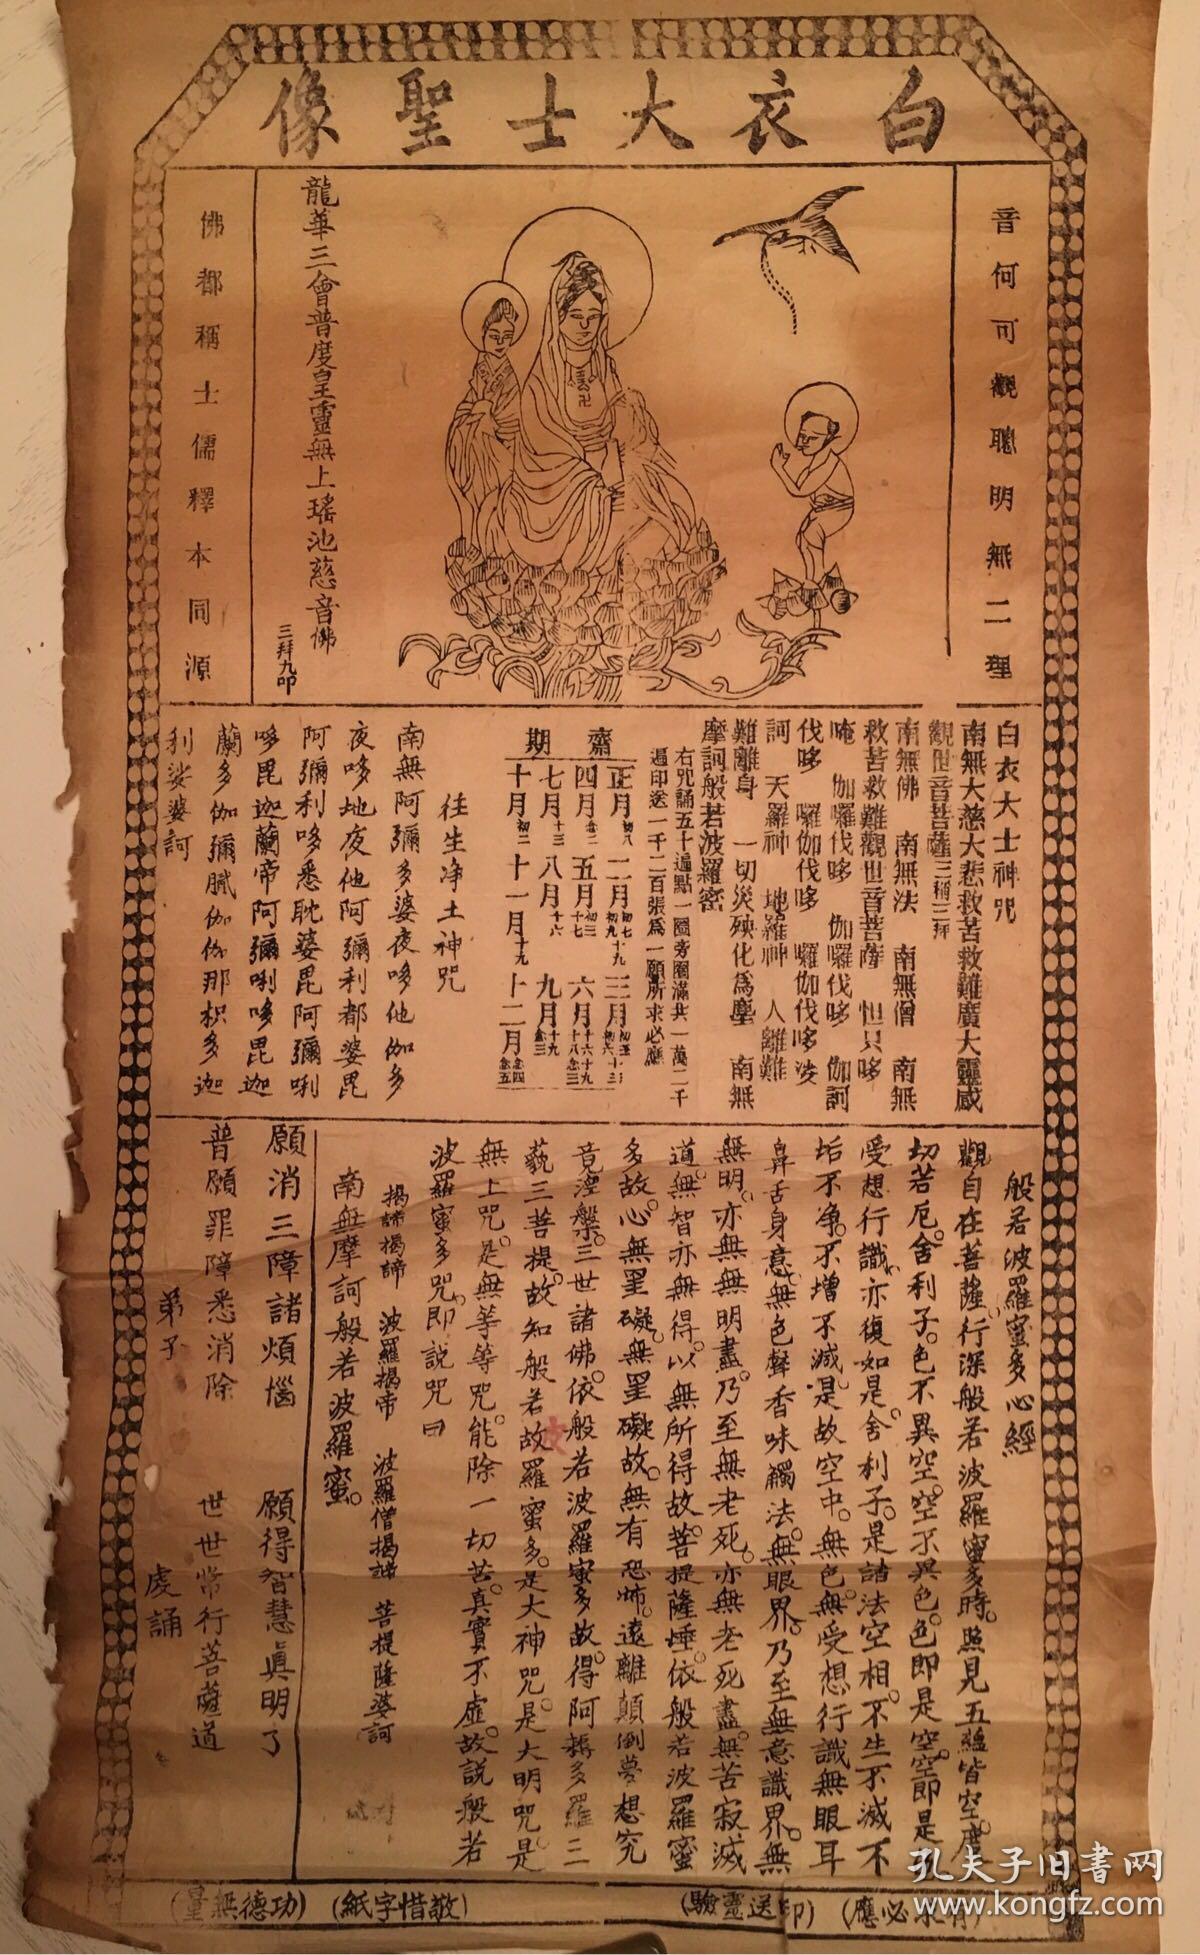 白衣大士聖像
音何可觀聰明無二理
龍華三會普度皇靈無上瑤池慈音佛
三拜九叩
佛都稱士儒釋本同源
卍
白衣大士神咒
南無大慈大悲救苦救難廣大靈感
觀世音菩薩三稱三拜
南無佛 南無法 南無僧 南無
救苦救難觀世音菩薩 怛只哆
唵 伽囉伐哆 伽囉伐哆 伽訶
伐哆 囉伽伐哆 囉伽伐哆 娑
訶 天羅神 地羅神 人離難
難離身 一切災殃化為塵 南無
摩訶般若波羅密
右咒誦五十遍點一圈旁圈滿共一萬二千
遍印送一千二百張為一願所求必應
齋期
正月初八 二月初七初九十九 三月
四月念二 五月初三十七 六月十六十八十九念三
七月十三 八月十六 九月十九念三
十月初二 十一月十九 十二月念四念五
往生净土神咒
南無阿彌多婆夜哆他伽多
夜哆地夜他阿彌利都婆毘
阿彌利哆悉耽婆毘阿彌唎
哆毘迦蘭帝阿彌唎哆毘迦
蘭多伽彌膩伽伽那枳多迦
利娑婆訶
般若波羅蜜多心經
觀自在菩薩。行深般若波羅蜜多時。照見五蘊皆空。度
切若厄。舍利子。色不異空。空不異色。色即是空。空即是
受想行識。亦復如是。舍利子。是諸法空相。不生不滅不
垢不净。不增不滅。是故空中。無色。無受想行識無眼耳
鼻舌身意。無色聲香味觸法。無眼界。乃至無意識界。無
無明。亦無無明盡。乃至無老死。亦無老死盡。無苦寂滅
道。無智亦無得。以無所得故。菩提薩埵。依般若波羅蜜
多故。心無罣礙。無罣礙故。無有恐怖。遠離顛倒夢想究
竟涅槃。三世諸佛。依般若波羅蜜多故。得阿耨多羅三
藐三菩提。故知般若故羅蜜多。是大神咒。是大明咒。是
無上咒。是無等等咒。能除一切苦。真實不虛。故説般若
波羅蜜多咒。即説咒曰
揭諦揭諦 波羅揭帝 波羅僧揭諦 菩提薩婆訶
南無摩訶般若波羅蜜。
願消三障諸煩惱 願得智慧真明了
普願罪障悉消除 世世常行菩薩道
弟子 虔誦
(有求必應) (印送靈驗) (敬惜字紙) (功德無量)
孔夫子旧書网
www.kongfz.com